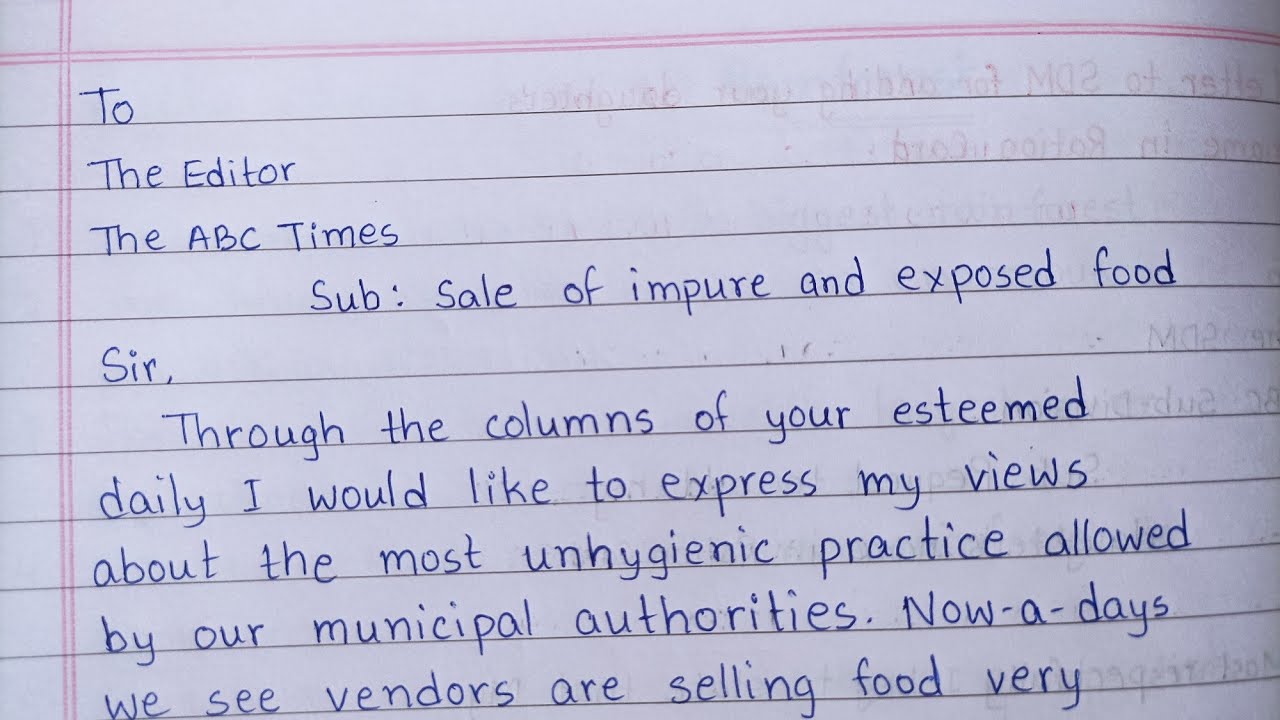 To
The Editor
The ABC Times
Sub: Sale of impure and exposed food
Sir,
Through the columns of your esteemed
daily I would like to express my views
about the most unhygienic practice allowed
by our municipal authorities. Now-a-days
we see vendors are selling food very